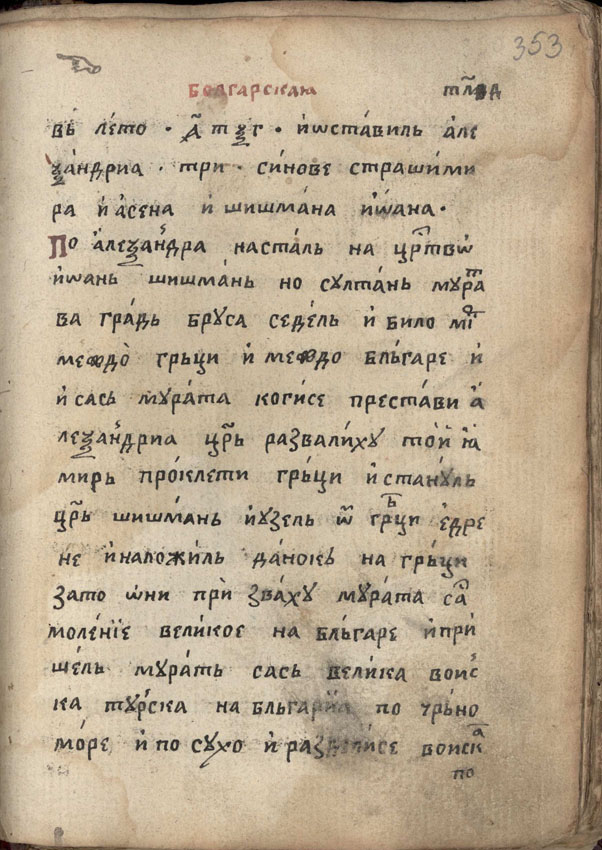 353
болгарскаꙗ
вь лето · а҃тѯг · и҆ѡставиль але
ѯа́ндриа · три · си́нове страши́ми
ра и҆ а҆сена и҆ шишма́на и҆ѡ́ана ·
По а҆леѯа́ндра наста́ль на црⷭ҇твѡ
и҆ѡань шишма́нь но султа́нь мурⷮа
ва гра́дь бруса седе́ль и҆ било миⷬ
междо̀ грьци и҆ междо бльгаре и҆
и҆ сась мура́та коги́се преста́ви а҆
леѯа́ндриа цр҃ь развали́ху то́й
мирь про́клети грь́ци и҆ стану́ль
цр҃ь шишма́нь и҆ узель ѿ грⸯци е҆дре
не и҆ наложи́ль да́нокь на грь́ци
зато ѡ҆ни прѝ зва́ху мꙋра́та са
моле́нїе вели́кое на бль́гаре и҆ при
ше́ль мура́ть сась вели́ка воиⷭ
ка ту́рска на бльгари́ꙗ по чрьно
мо́ре и҆ по сухо и҆ воискⷶ
по